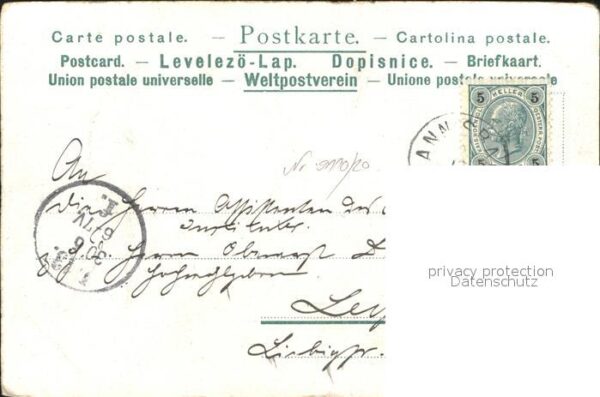 Carte postale. — Postkarte. — Cartolina postale.
Postcard. — Levelezö-Lap. Dopisnice. — Briefkaart.
Union postale universelle — Weltpostverein — Unione postale universale
5 HELLER 5
ANN
Nr
An
die Herren Assistenten des
Instituts
Herrn Oberarzt D
Hochwohlgeboren
Leip
Liebigstr.
privacy protection
Datenschutz